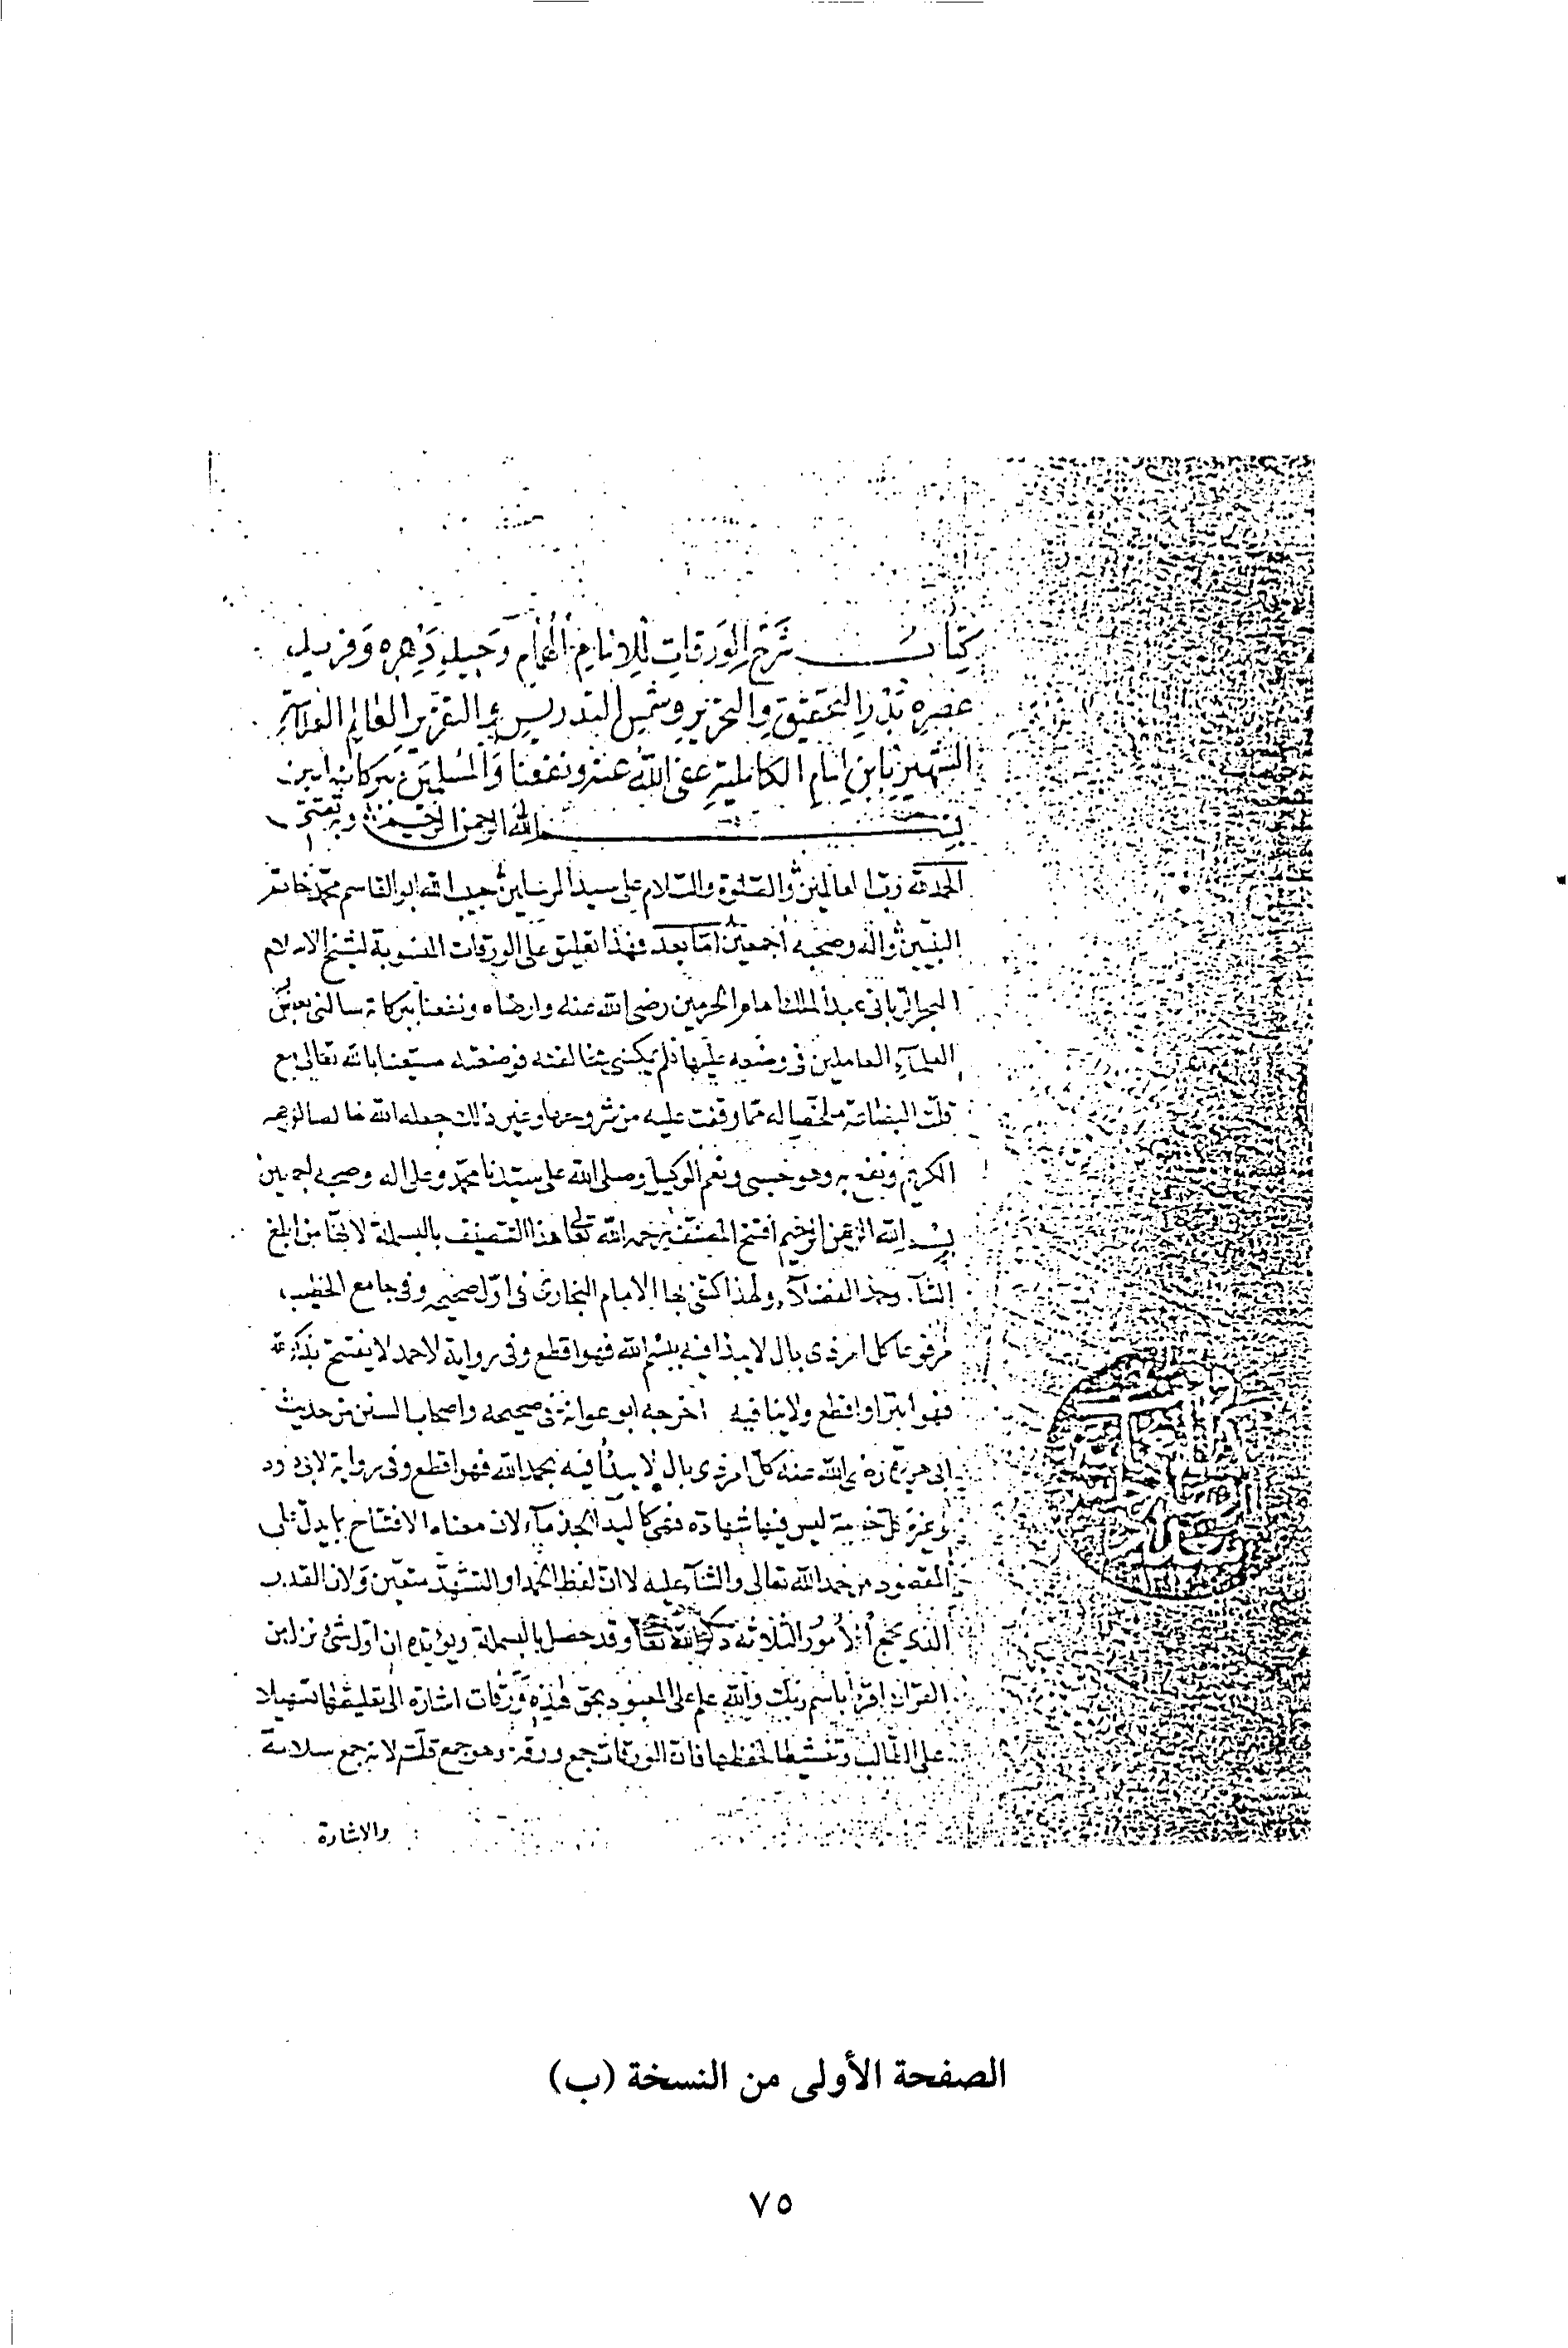 كتاب شرح الورقات للإمام الهمام وحيد دهره وفريد
عصره بدر التحقيق والتحرير وشمس التدريس والتقرير العالم العلامة
الشهير بابن امام الكاملية عفى الله عنه ونفعنا والمسلمين ببركاته امين
بسم الله الرحمن الرحيم وبه ثقتي
الحمد لله رب العالمين والصلوة والسلام على سيد المرسلين حبيب الله ابو القاسم محمد خاتم
النبيين واله وصحبه اجمعين اما بعد فهذا تعليق على الورقات المنسوبة لشيخ الاسلام
البحر الرباني عبد الملك امام الحرمين رضى الله عنه وارضاه ونفعنا ببركاته سالنى بعض
العلمآء العاملين فى وضعه عليها فلم يمكنى مخالفته فوضعته مستعينا بالله تعالى مع
قلت البضاعة ملخصا له مما وقفت عليه من شروحها وغير ذلك جعله الله خالصا لوجهه
الكريم ونفع به وهو حسبى ونعم الوكيل وصلى الله على سيدنا محمد وعلى اله وصحبه اجمعين
بسم الله الرحمن الرحيم افتتح المصنف رحمه الله تعالى هذا التصنيف بالبسملة لانها من ابلغ
الثنآء وحمد الفضلآء ولهذا اكتفى بها الامام البخارى فى اول صحيحه وفى جامع الخطيب
مرفوعا كل امر ذى بال لا يبدا فيه ببسم الله فهو اقطع وفى رواية لاحمد لا يفتتح بذكر الله
فهو ابتر او اقطع ولا ينافيه اخرجه ابو عوانة فى صحيحه واصحاب السنن من حديث
ابى هريرة رضى الله عنه كل امر ذى بال لا يبدأ فيه بحمد الله فهو اقطع وفى رواية لابى داود
وغيره كل خطبة ليس فيها شهادة فهى كاليد الجذمآء لان معناه الافتتاح بما يدل على
المقصود من حمد الله تعالى والثنآء عليه لا ان لفظ الحمد او التشهد متعين ولان القدر
الذى يجمع الامور الثلاثة ذكر الله تعالى وقد حصل بالبسملة ويؤيده ان اول شئ نزل من
القران اقرأ باسم ربك والله علم على المعبود بحق هذه ورقات اشارة الى تقليلها تسهيلا
على الطالب وتنشيطا لحفظها فان الورقات جمع ورقة وهو جمع قلت لانه جمع سلامة
والاشارة
الصفحة الأولى من النسخة (ب)
٧٥